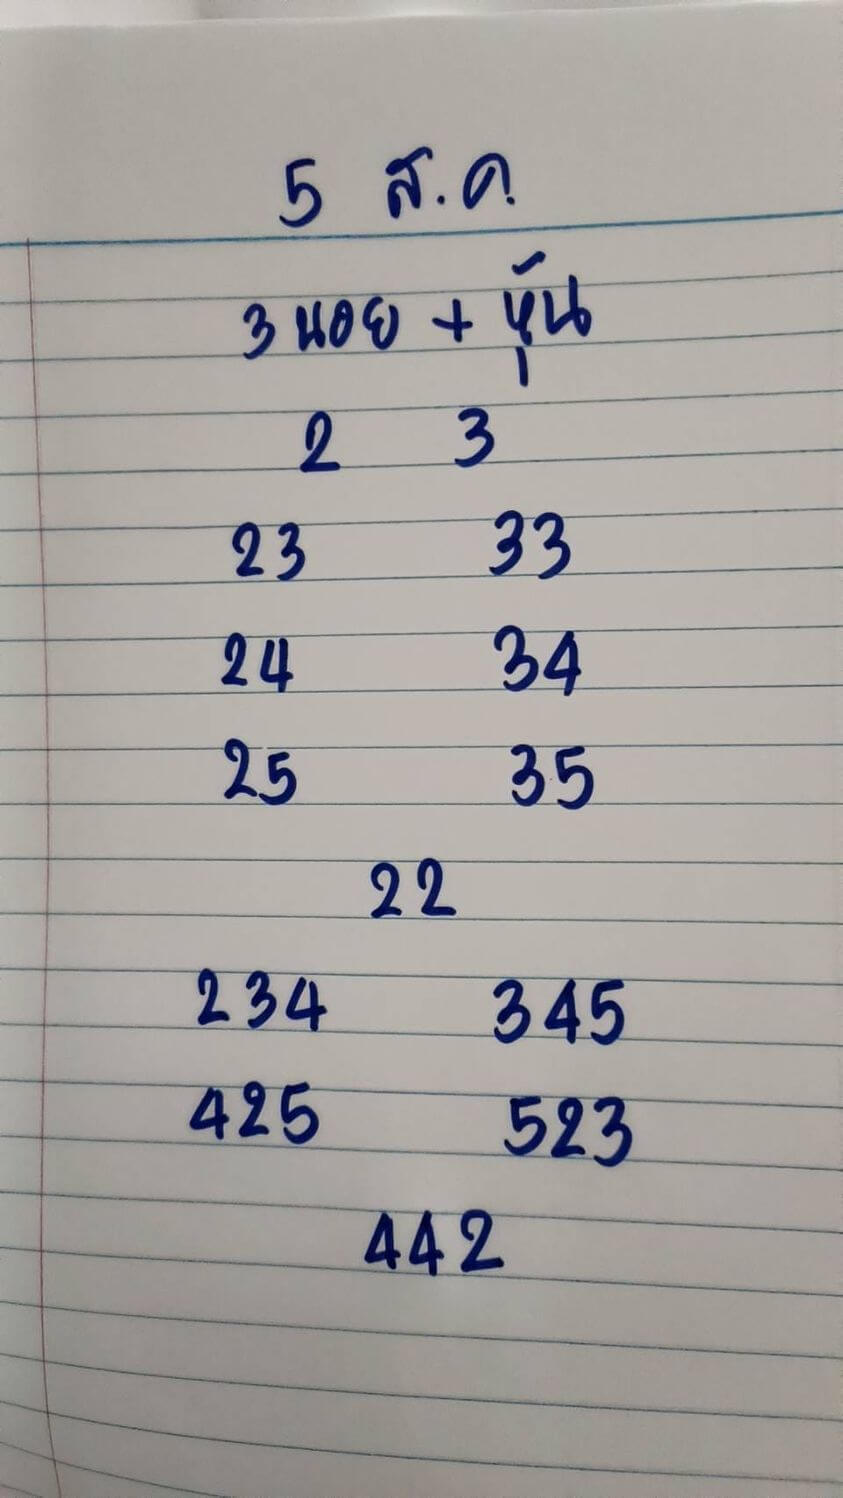 5 ส.ค.
3 นอย + หุ้น
2 3
23 33
24 34
25 35
22
234 345
425 523
442